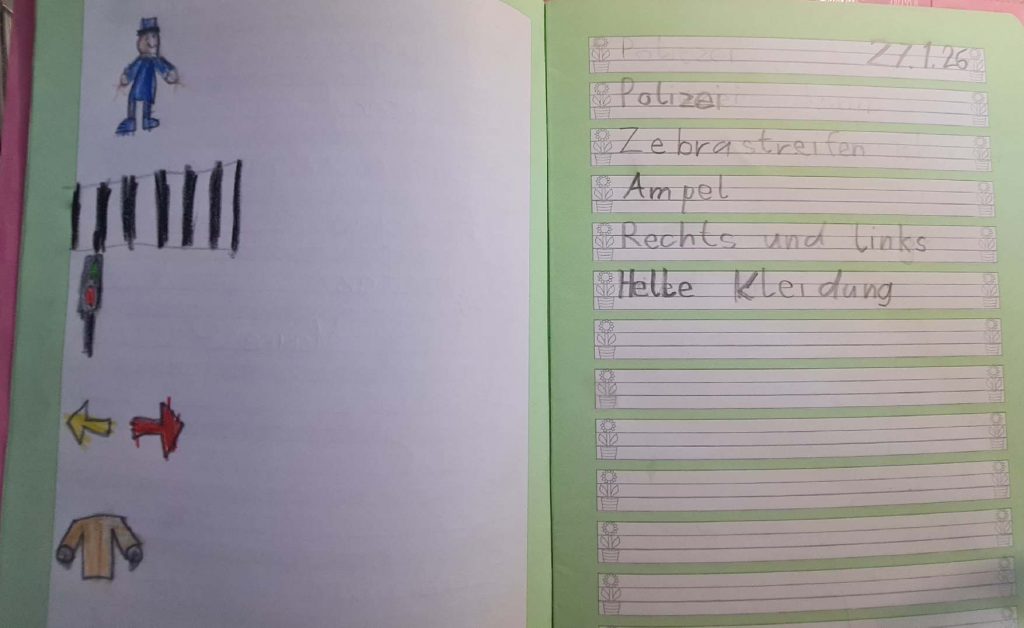 Polizei 27.1.26
Polizei
Zebrastreifen
Ampel
Rechts und links
Helle Kleidung